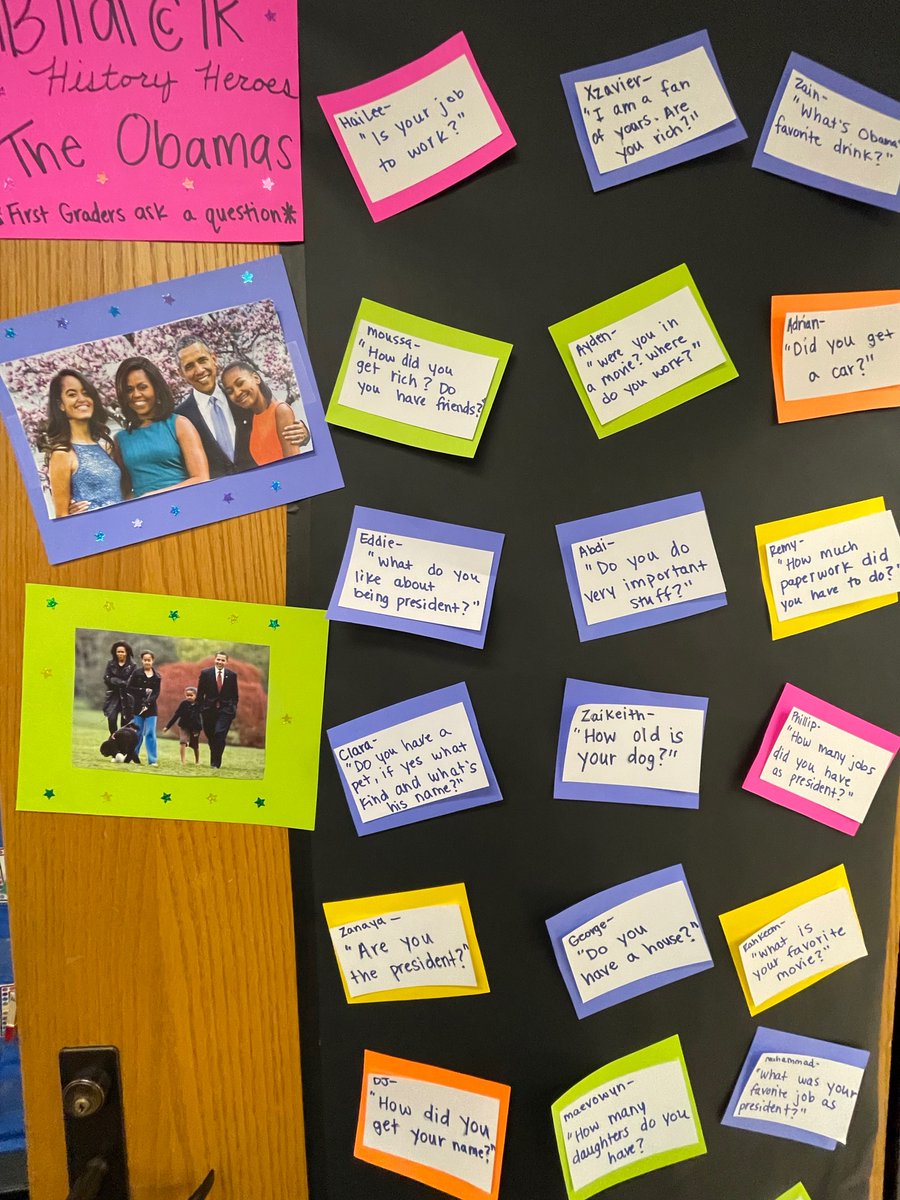 Black
History Heroes
The Obamas
*First Graders ask a question*
HaiLee-
"Is your job
to work?"
Xzavier-
"I am a fan
of yours. Are
you rich?"
Zain-
"What's Obama's
favorite drink?"
Moussa-
"How did you
get rich? Do
you have friends?"
Ayden-
"were you in
a movie? Where
do you work?"
Adrian-
"Did you get
a car?"
Eddie-
"What do you
like about
being president?"
Abdi-
"Do you do
very important
stuff?"
Remy-
"How much
paperwork did
you have to do?"
Clara-
"Do you have a
pet, if yes what
kind and what's
his name?"
Zaikeith-
"How old is
your dog?"
Phillip-
"How many jobs
did you have
as president?"
Zanaya-
"Are you
the president?"
George-
"Do you
have a house?"
RahKeem-
"What is
your favorite
movie?"
DJ-
"How did you
get your name?"
maevowyn-
"How many
daughters do you
have?
muhammad-
"What was your
favorite job as
president?"